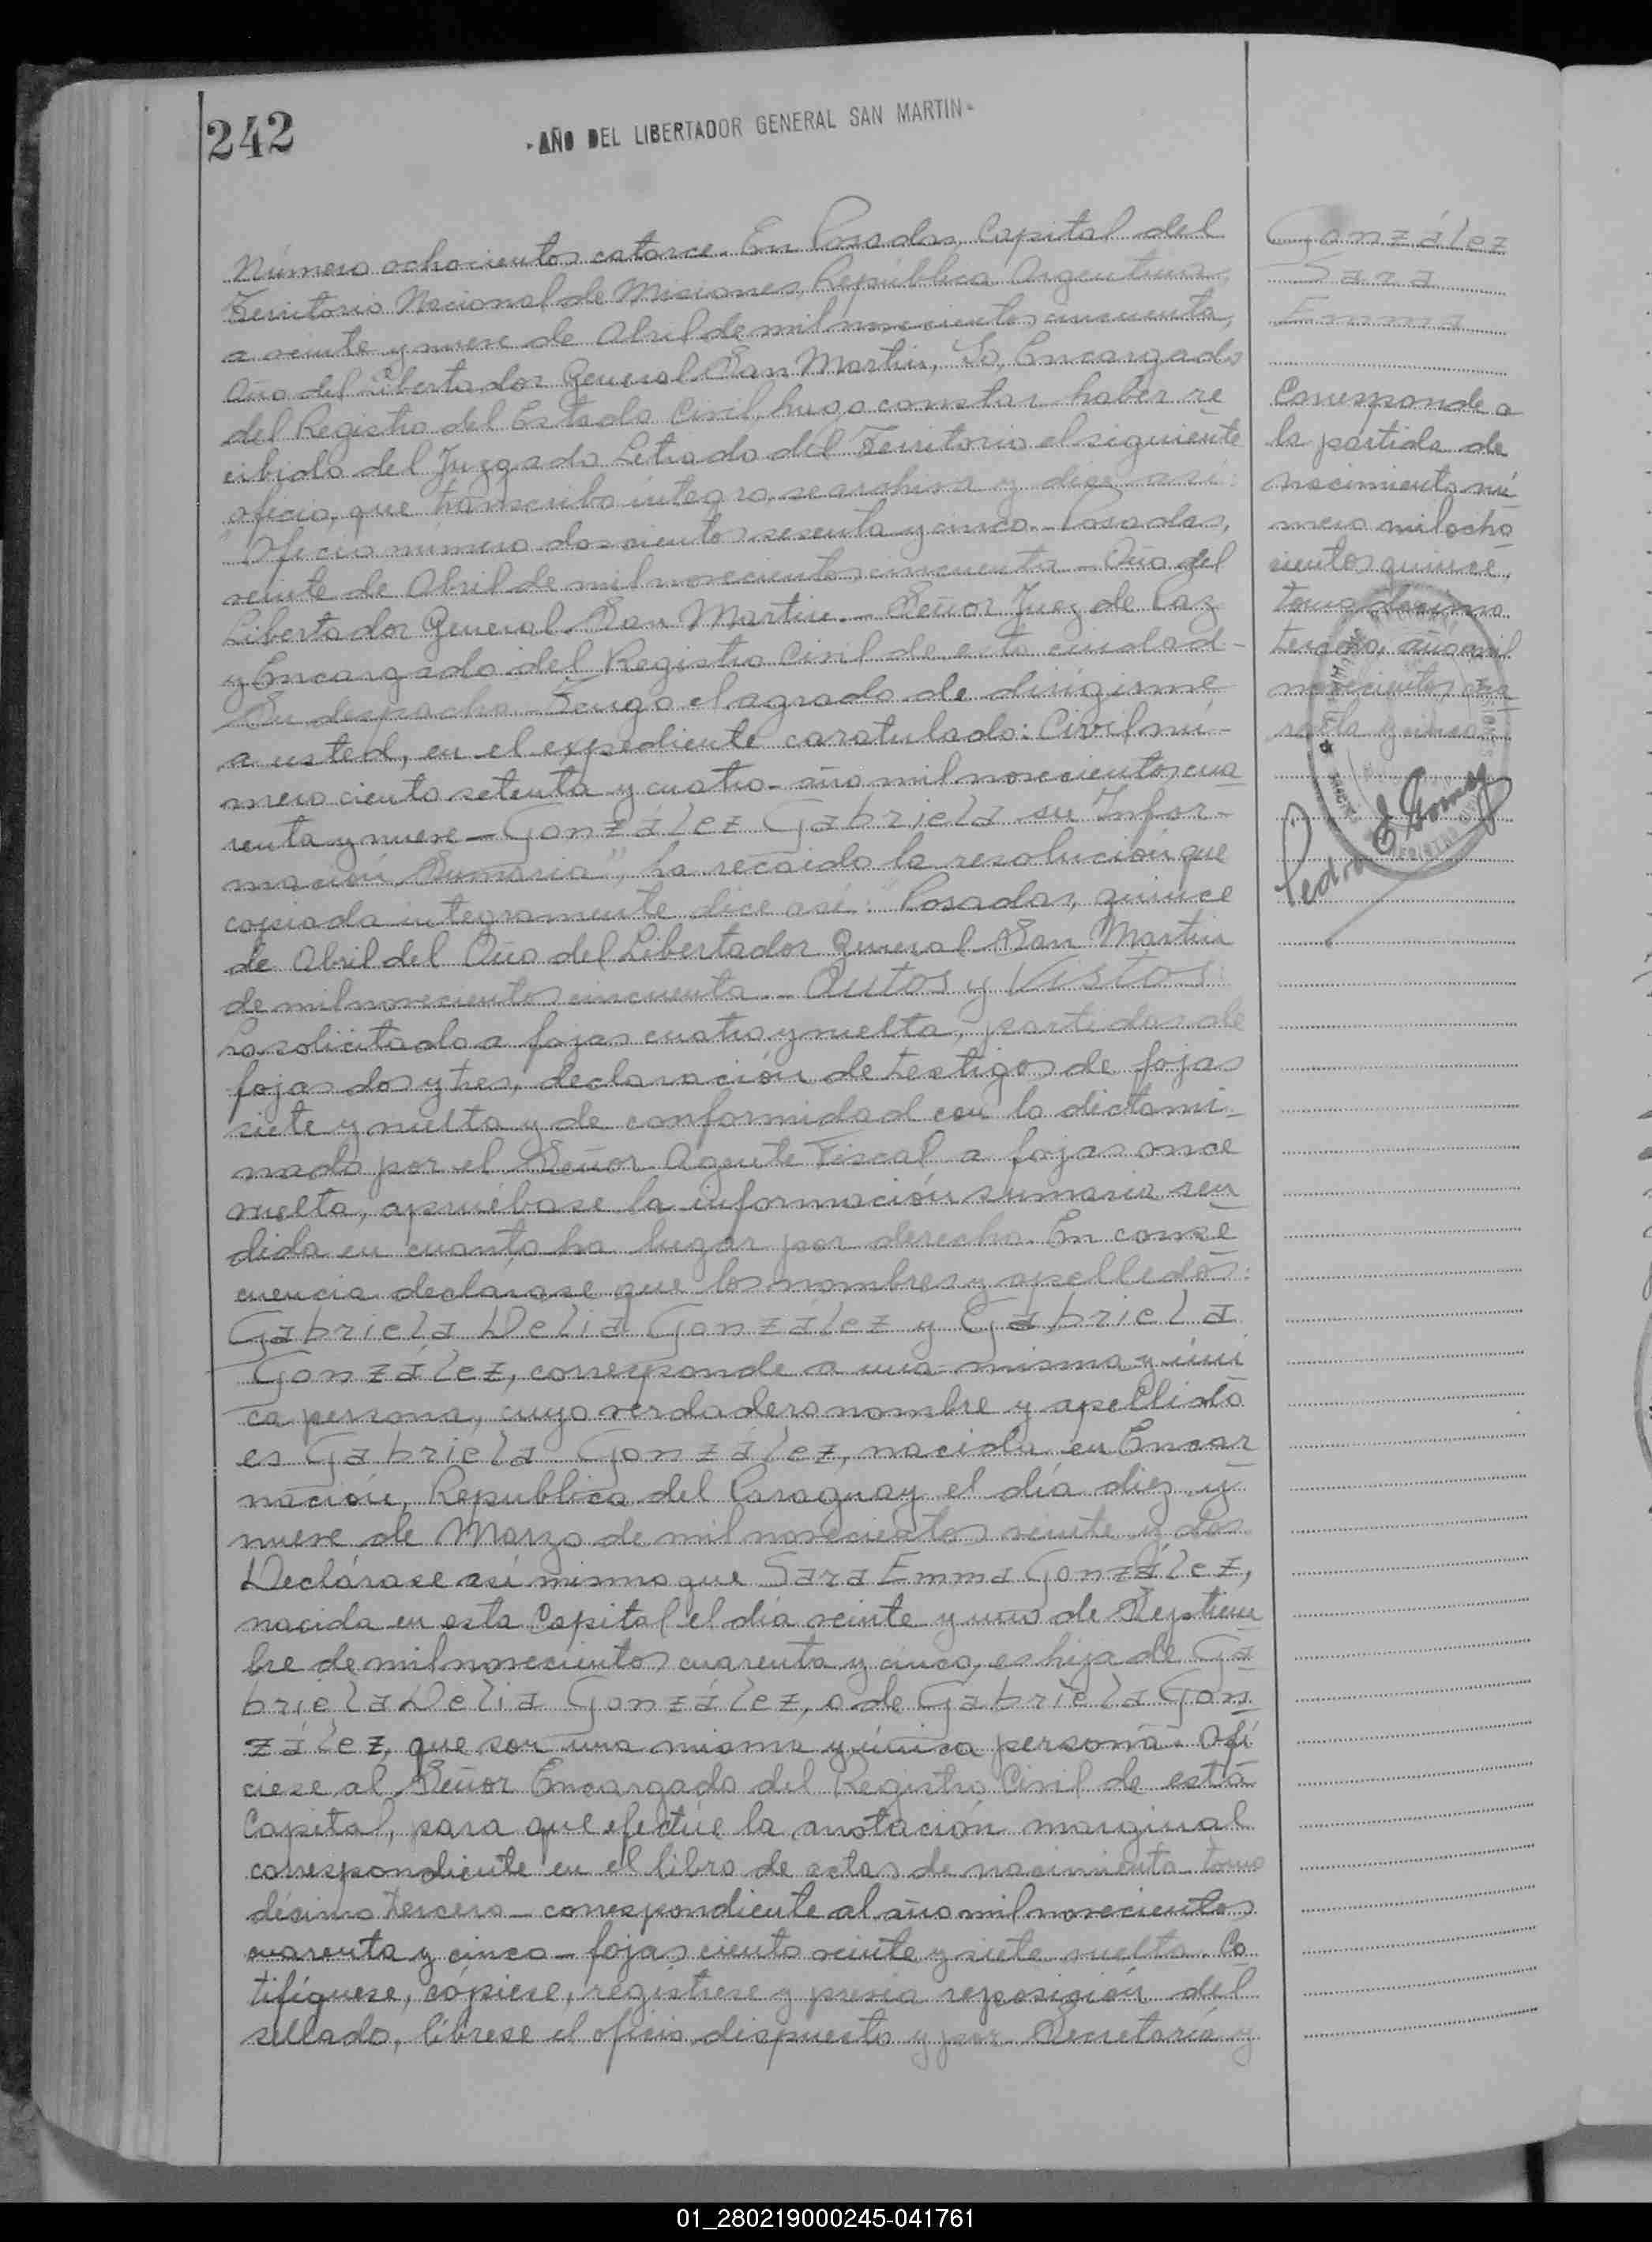 242
- AÑO DEL LIBERTADOR GENERAL SAN MARTIN -
Número ochocientos catorce. En Posadas, Capital del
Territorio Nacional de Misiones, República Argentina,
a veinte y nueve de Abril de mil novecientos cincuenta,
Año del Libertador General San Martin, Yo, Encargado
del Registro del Estado Civil, hago constar haber re
cibido del Juzgado Letrado del Territorio el siguiente
oficio, que transcribo íntegro, se archiva y dice así:
"Oficio número doscientos sesenta y cinco.- Posadas,
veinte de Abril de mil novecientos cincuenta - Año del
Libertador General San Martin.- Señor Juez de Paz
y Encargado del Registro Civil de esta ciudad -
Su despacho - Tengo el agrado de dirigirme
a usted, en el expediente caratulado: Civil nú-
mero ciento setenta y cuatro - año mil novecientos cua
renta y nueve - González Gabriela su Infor-
mación Sumaria", ha recaido la resolución que
copiada integramente dice así: "Posadas, quince
de Abril del Año del Libertador General San Martin
de mil novecientos cincuenta.- Autos y Vistos:
Lo solicitado a fojas cuatro y vuelta, partidas de
fojas dos y tres, declaración de testigos de fojas
siete y vuelta y de conformidad con lo dictami-
nado por el Señor Agente Fiscal a fojas once
vuelta, apruébase la información sumaria ren
dida en cuanto ha lugar por derecho. En conse
cuencia declarase que los nombres y apellidos:
Gabriela Delia González y Gabriela
González, corresponde a una misma y úni
ca persona, cuyo verdadero nombre y apellido
es Gabriela González, nacida en Encar
nación, Republica del Paraguay el día diez y
nueve de Marzo de mil novecientos veinte y dos.
Declárase así mismo que Sara Emma González,
nacida en esta Capital el día veinte y uno de Septiem
bre de mil novecientos cuarenta y cinco, es hija de Ga
briela Delia González, o de Gabriela Gon
zález, que son una misma y única persona. Ofi
ciese al Señor Encargado del Registro Civil de esta
Capital, para que efectúe la anotación marginal
correspondiente en el libro de actas de nacimiento tomo
décimo tercero - correspondiente al año mil novecientos
cuarenta y cinco - fojas ciento veinte y siete vuelta.
tifíquese, cópiese, regístrese y previa reposición del
sellado, líbrese el oficio dispuesto y por Secretaría y
González
Sara
Emma
Corresponde a
la partida de
nacimiento nú
mero mil ocho
cientos quince,
tomo décimo
tercero, año mil
novecientos cua
renta y cinco
Pedro E. Gomez
01_280219000245-041761